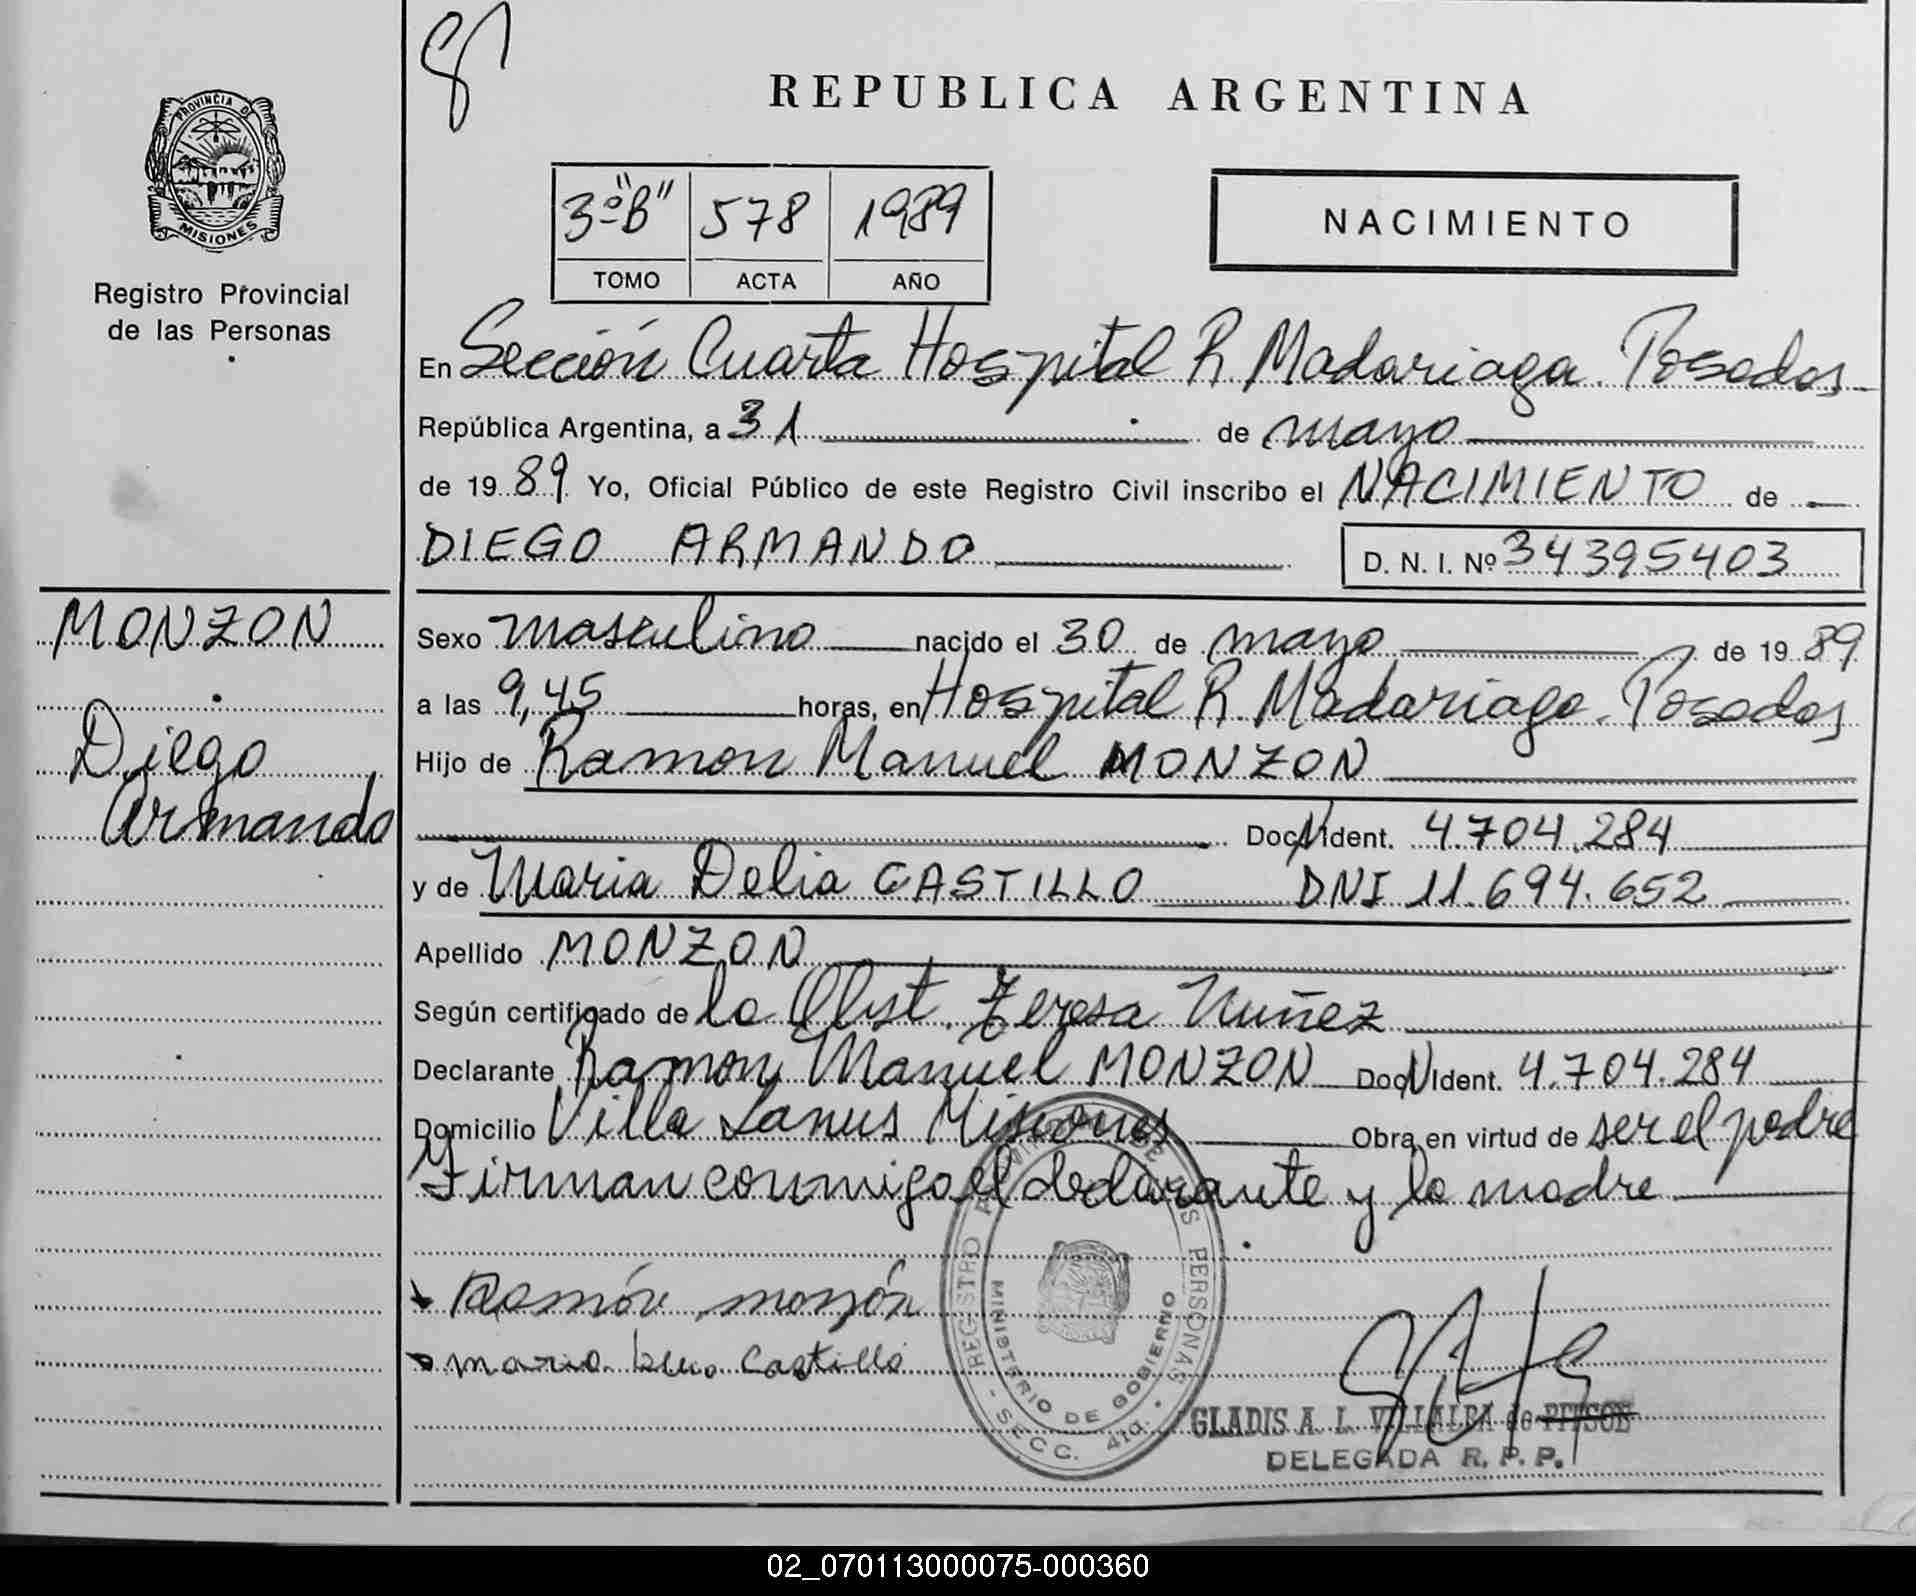 REPUBLICA ARGENTINA
PROVINCIA DE
MISIONES
Registro Provincial
de las Personas
3º "B" 578 1989
TOMO ACTA AÑO
NACIMIENTO
En Sección Cuarta Hospital R. Madariaga. Posadas
República Argentina, a 31 de mayo
de 1989 Yo, Oficial Público de este Registro Civil inscribo el NACIMIENTO de
DIEGO ARMANDO D. N. I. Nº 34395403
MONZON
Diego
Armando
Sexo masculino nacido el 30 de mayo de 1989
a las 9,45 horas, en Hospital R. Madariaga. Posadas
Hijo de Ramon Manuel MONZON
Doc. N Ident. 4.704.284
y de Maria Delia CASTILLO DNI 11.694.652
Apellido MONZON
Según certificado de la Obst. Teresa Nuñez
Declarante Ramon Manuel MONZON Doc. N Ident. 4.704.284
Domicilio Villa Lanus Misiones Obra en virtud de ser el padre
Firman conmigo el declarante y la madre
Ramón monzón
maria Castillo
REGISTRO PROVINCIAL DE LAS PERSONAS
MINISTERIO DE GOBIERNO
SECC. 4ta.
GLADIS A. L. VILLALBA de
DELEGADA R. P. P.
02_070113000075-000360